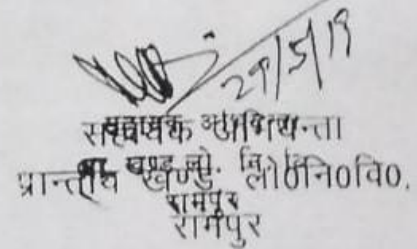 29/5/19
सहायक अभियन्ता
प्रान्तीय खण्ड, लो०नि०वि०,
रामपुर
रामपुर